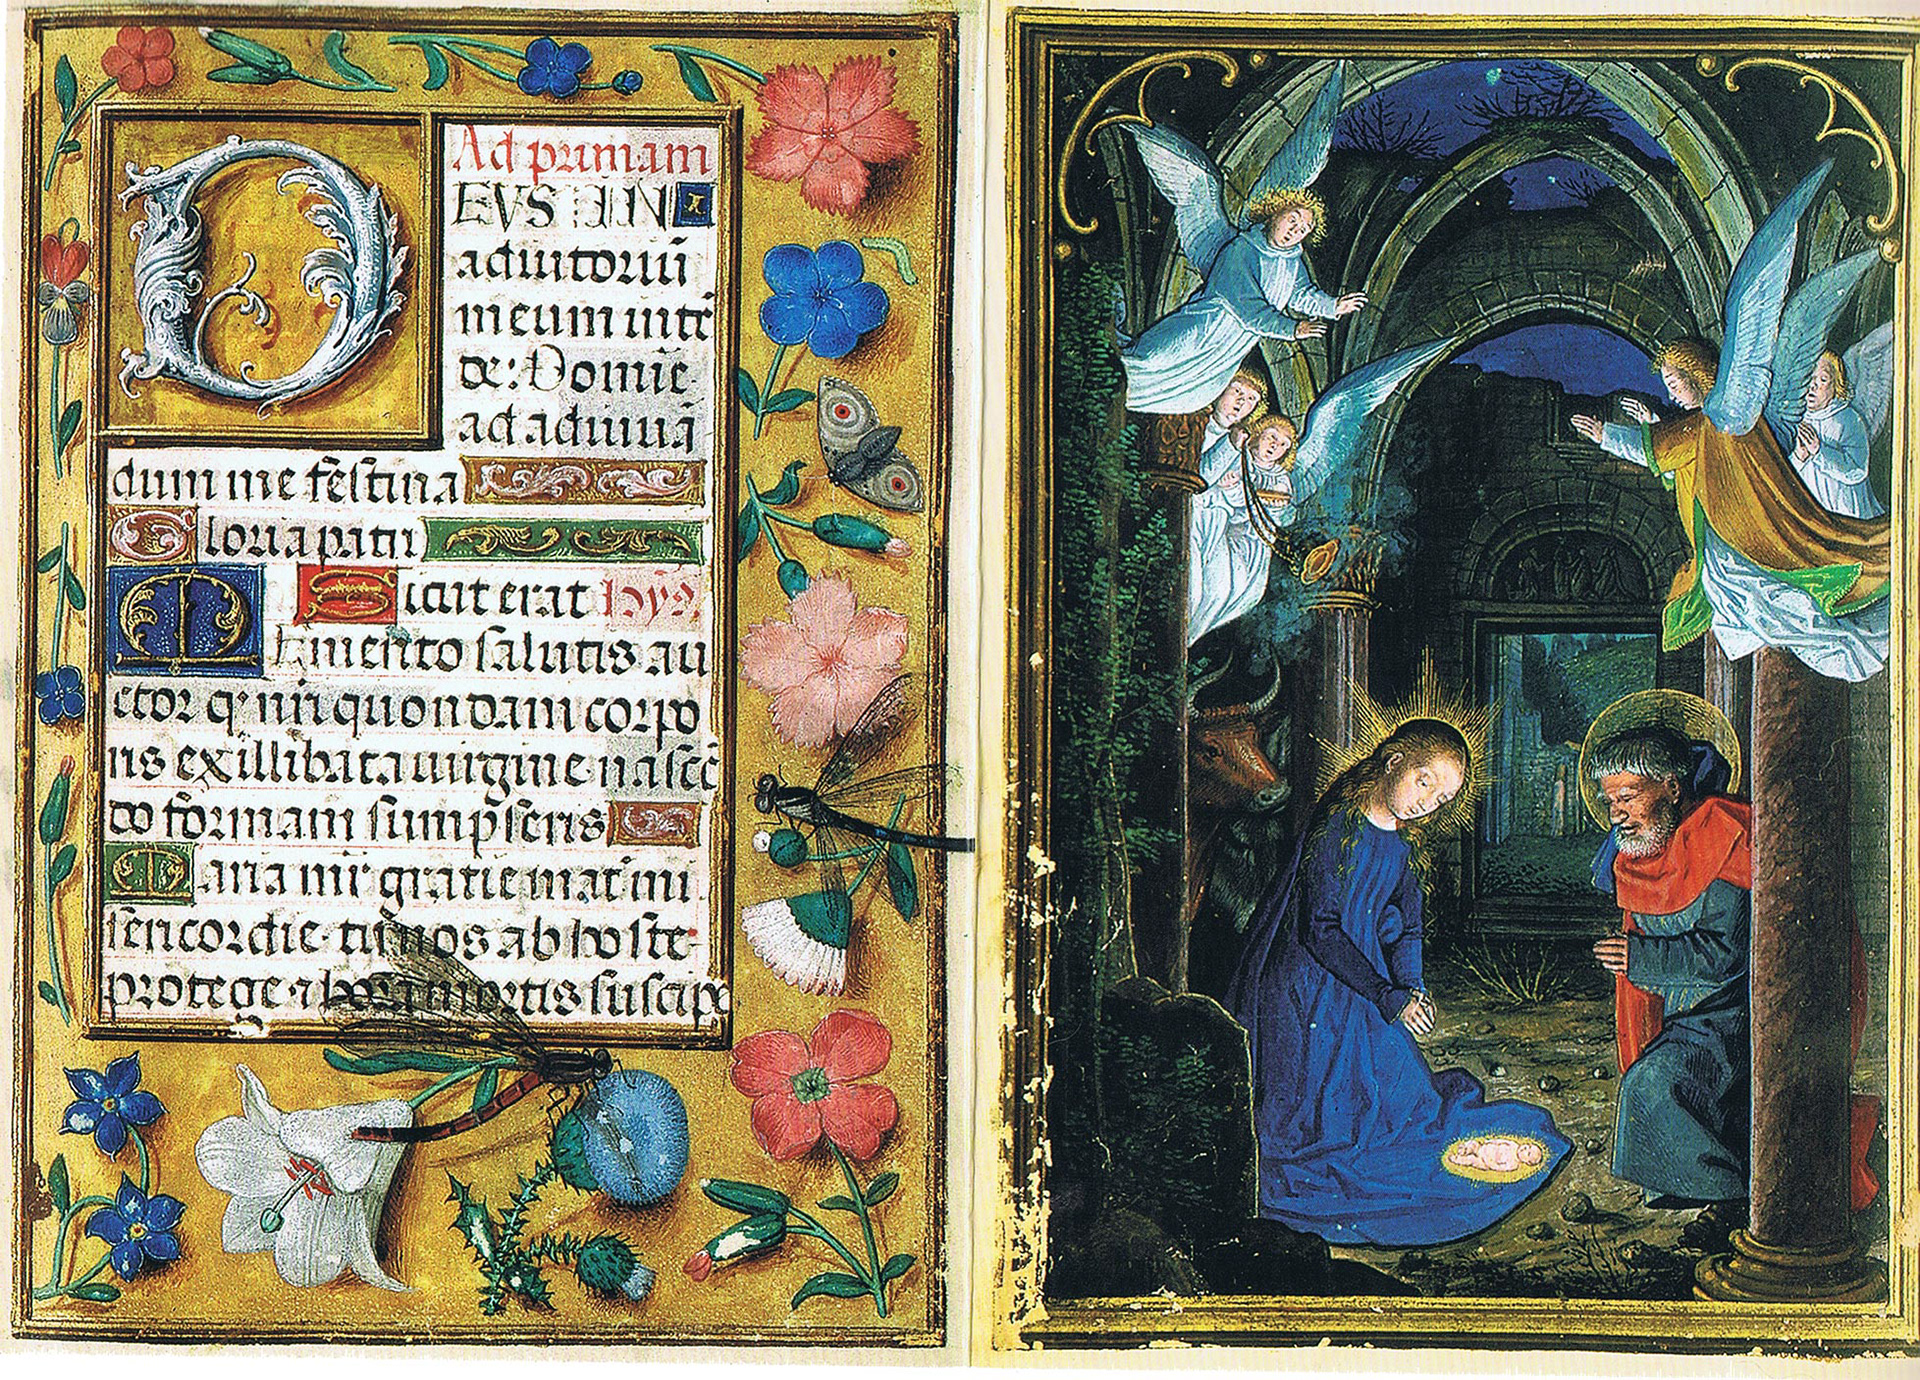 Ad primam
EUS IN A
adiutoriū
meum intē
de: Domīe
ad adiuuā
dum me festina
Gloria patri
Sicut erat hȳs.
Memento salutis au
ctor qͥ nr̄i quondam corpo
ris ex illibata uirgine nascē
do formam sumpseris
Maria mr̄ gratie mat̄ mi
sericordie tu nos ab hoste
protege ⁊ hora mortis suscipe